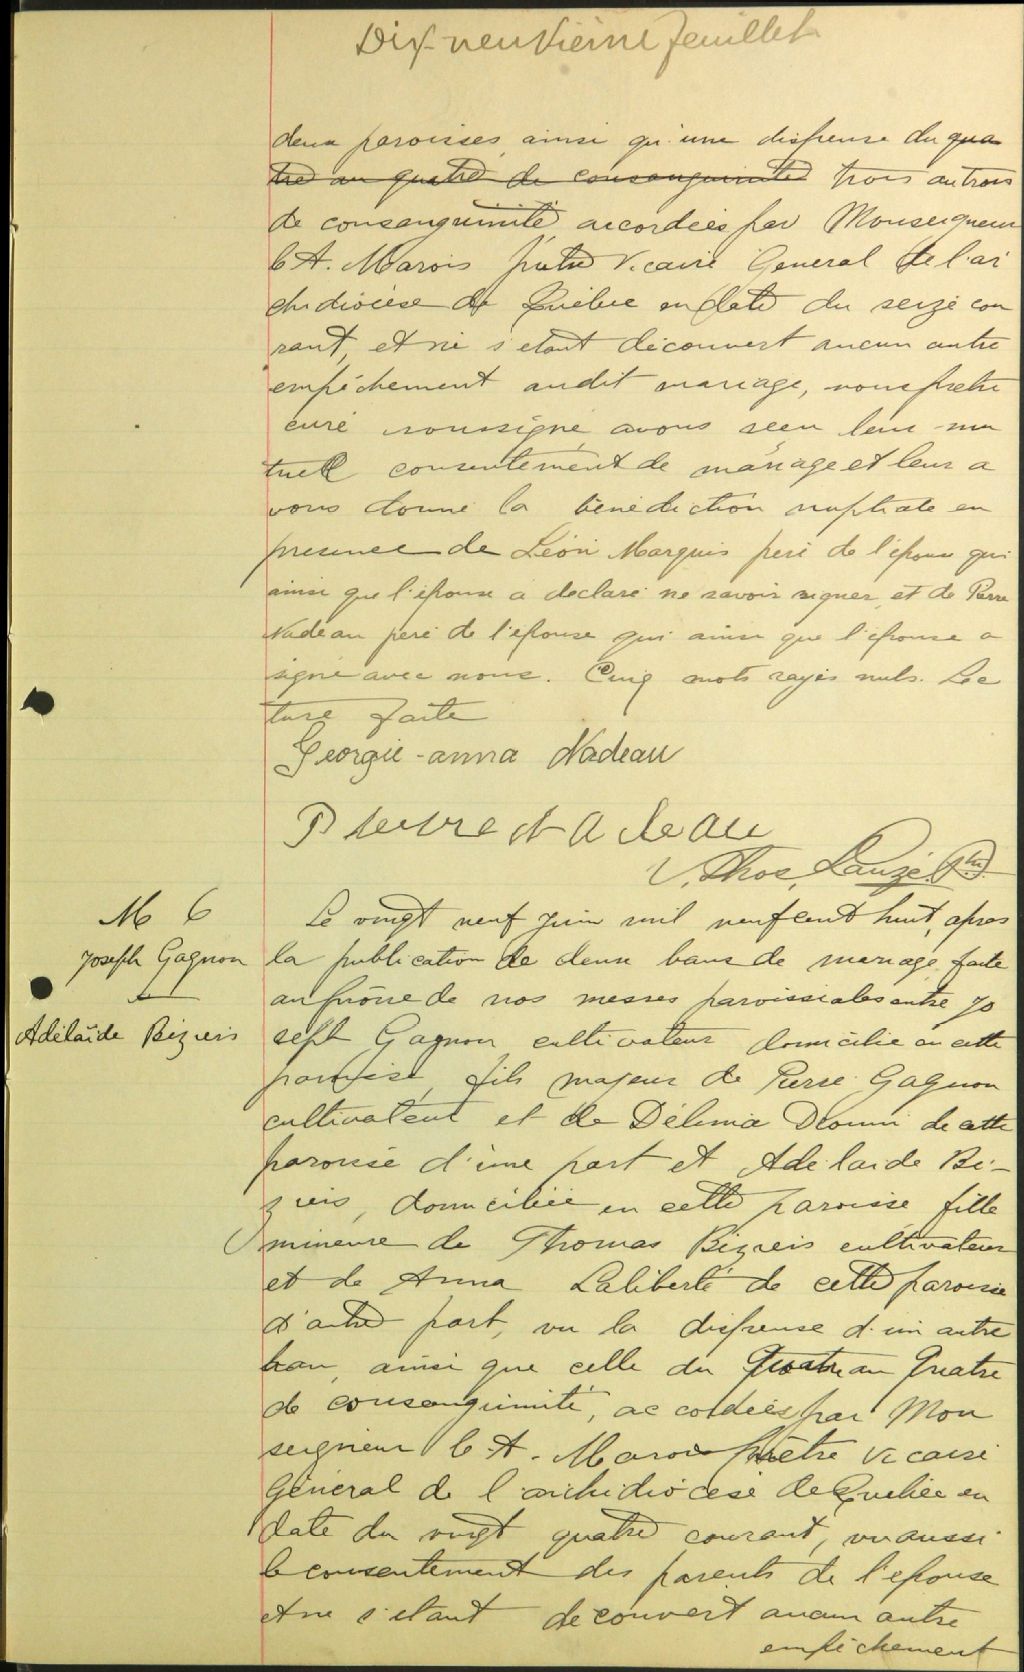 Dix-neuvième feuillet
deux paroisses, ainsi qu'une dispense du qua
tre au quatre de consanguinité trois au trois
de consanguinité accordées par Monseigneur
C. A. Marois prêtre Vicaire General de l'ar
chidiocèse de Québec en date du seize cou
rant, et ne s'etant découvert aucun autre
empêchement audit mariage, nous prêtre
curé soussigné avons reçu leur mu
tuel consentement de mariage et leur a
vons donné la bénédiction nuptiale en
presence de Léon Marquis père de l'époux qui
ainsi que l'époux a declaré ne savoir signer, et de Pierre
Nadeau père de l'épouse qui ainsi que l'épouse a
signé avec nous. Cinq mots rayés nuls. Lec
ture faite
Georgie-anna Nadeau
Pierre Nadeau
V. Thos. Lauzé. Ptre.
M 6
Joseph Gagnon
&
Adélaïde Bizieis
Le vingt neuf juin mil neuf cent huit, après
la publication de deux bans de mariage faite
au prône de nos messes paroissiales entre Jo
seph Gagnon cultivateur domicilié en cette
paroisse, fils majeur de Pierre Gagnon
cultivateur et de Délima Drouin de cette
paroisse d'une part et Adelaïde Bi-
zieis, domiciliée en cette paroisse fille
mineure de Thomas Bizieis cultivateur
et de Anna Laliberté de cette paroisse
d'autre part, vu la dispense d'un autre
ban, ainsi que celle du Quatre au Quatre
de consanguinité, accordées par Mon
seigneur C. A. Marois prêtre Vicaire
Général de l'archidiocèse de Québec en
date du vingt quatre courant, vu aussi
le consentement des parents de l'épouse
et ne s'etant découvert aucun autre
empêchement